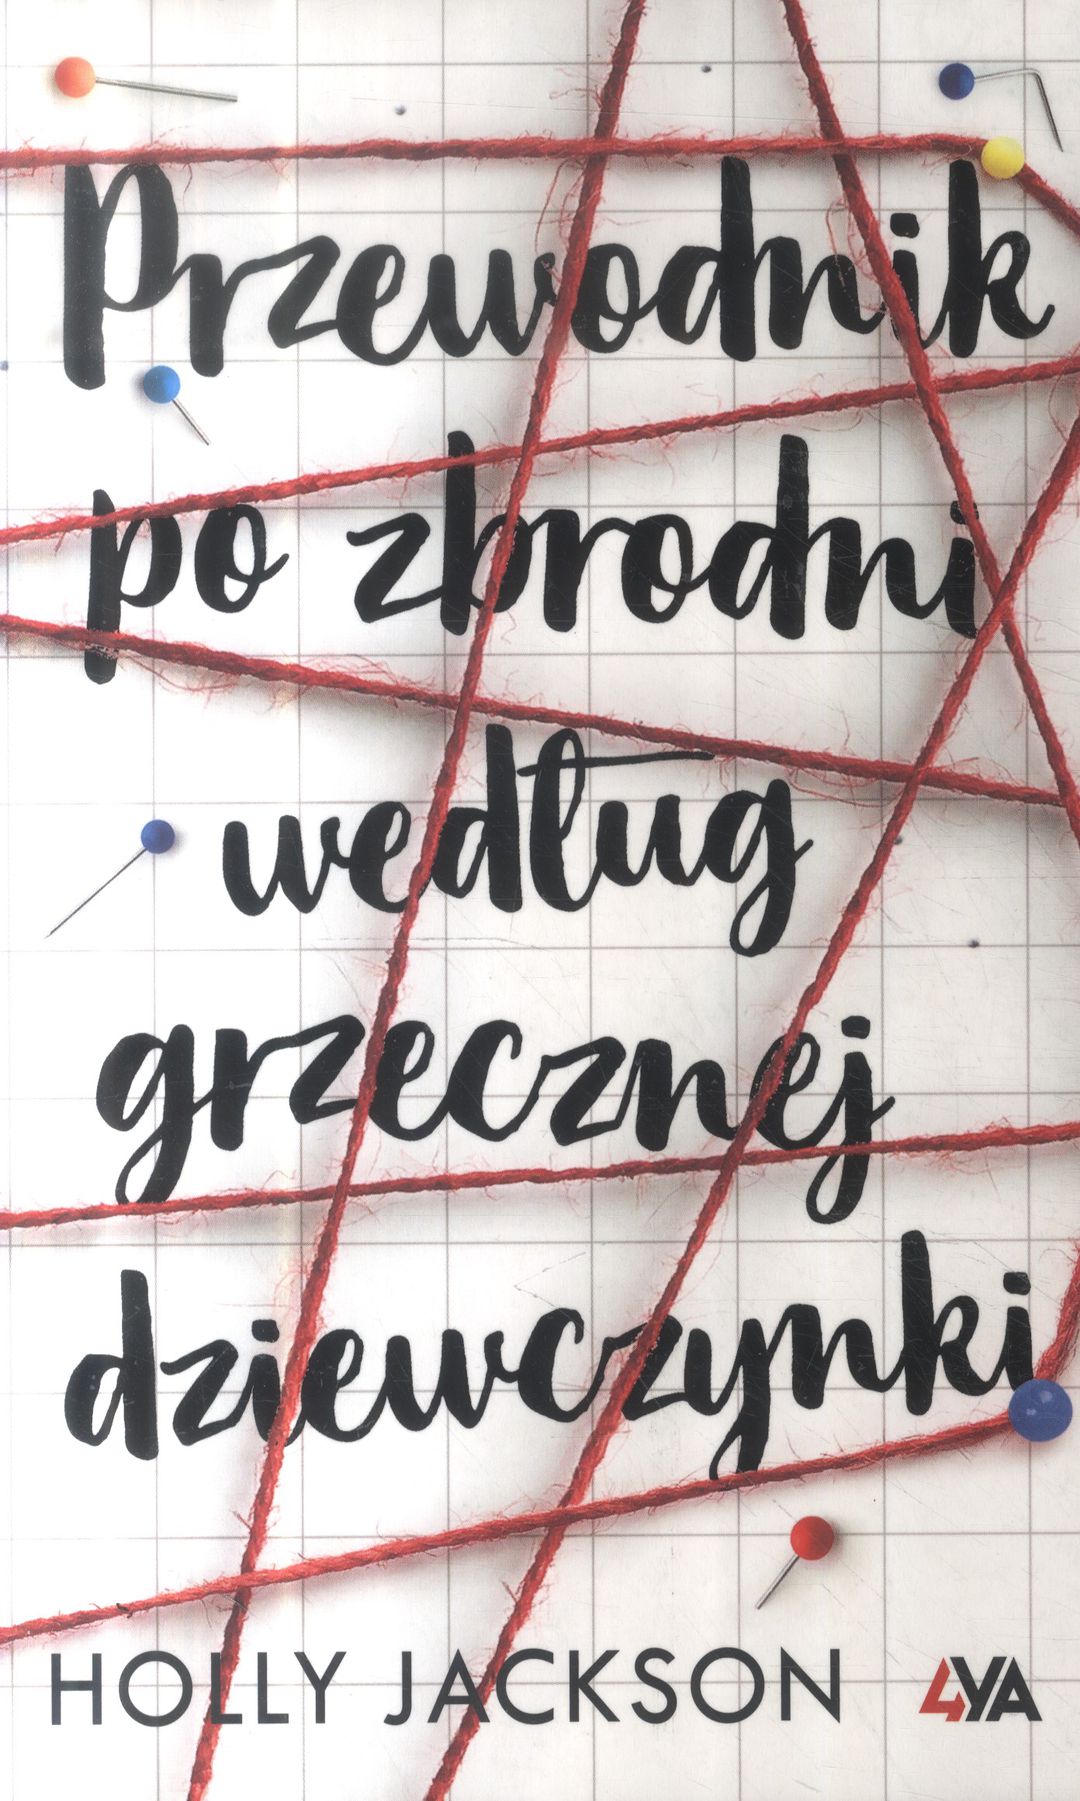 Przewodnik
po zbrodni
według
grzecznej
dziewczynki
HOLLY JACKSON 4YA